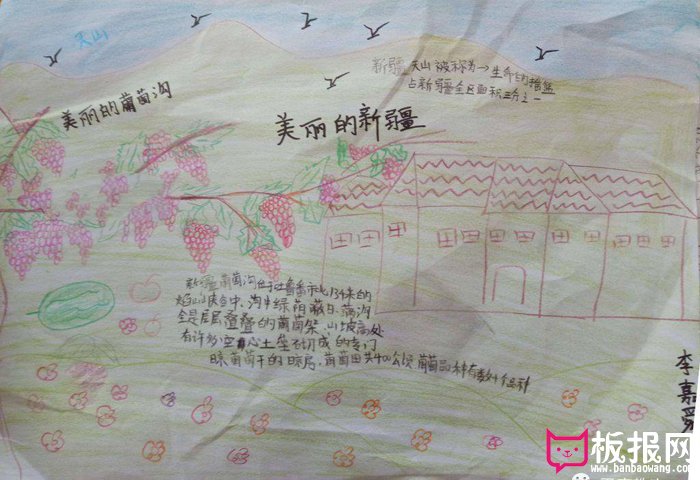 天山
新疆 天山被称为→生命的摇篮
占新疆全区面积三分之一
美丽的葡萄沟
美丽的新疆
新疆葡萄沟位于吐鲁番市北13千米的
焰山峡谷中、沟中绿荫蔽日、满沟
全是层层叠叠的葡萄架、山坡高处
有许多空心土垒石切成的专门
晾葡萄干的晾房、葡萄田共400公顷 葡萄品种有数十个品种
李嘉
板报网
www.banbaowang.com